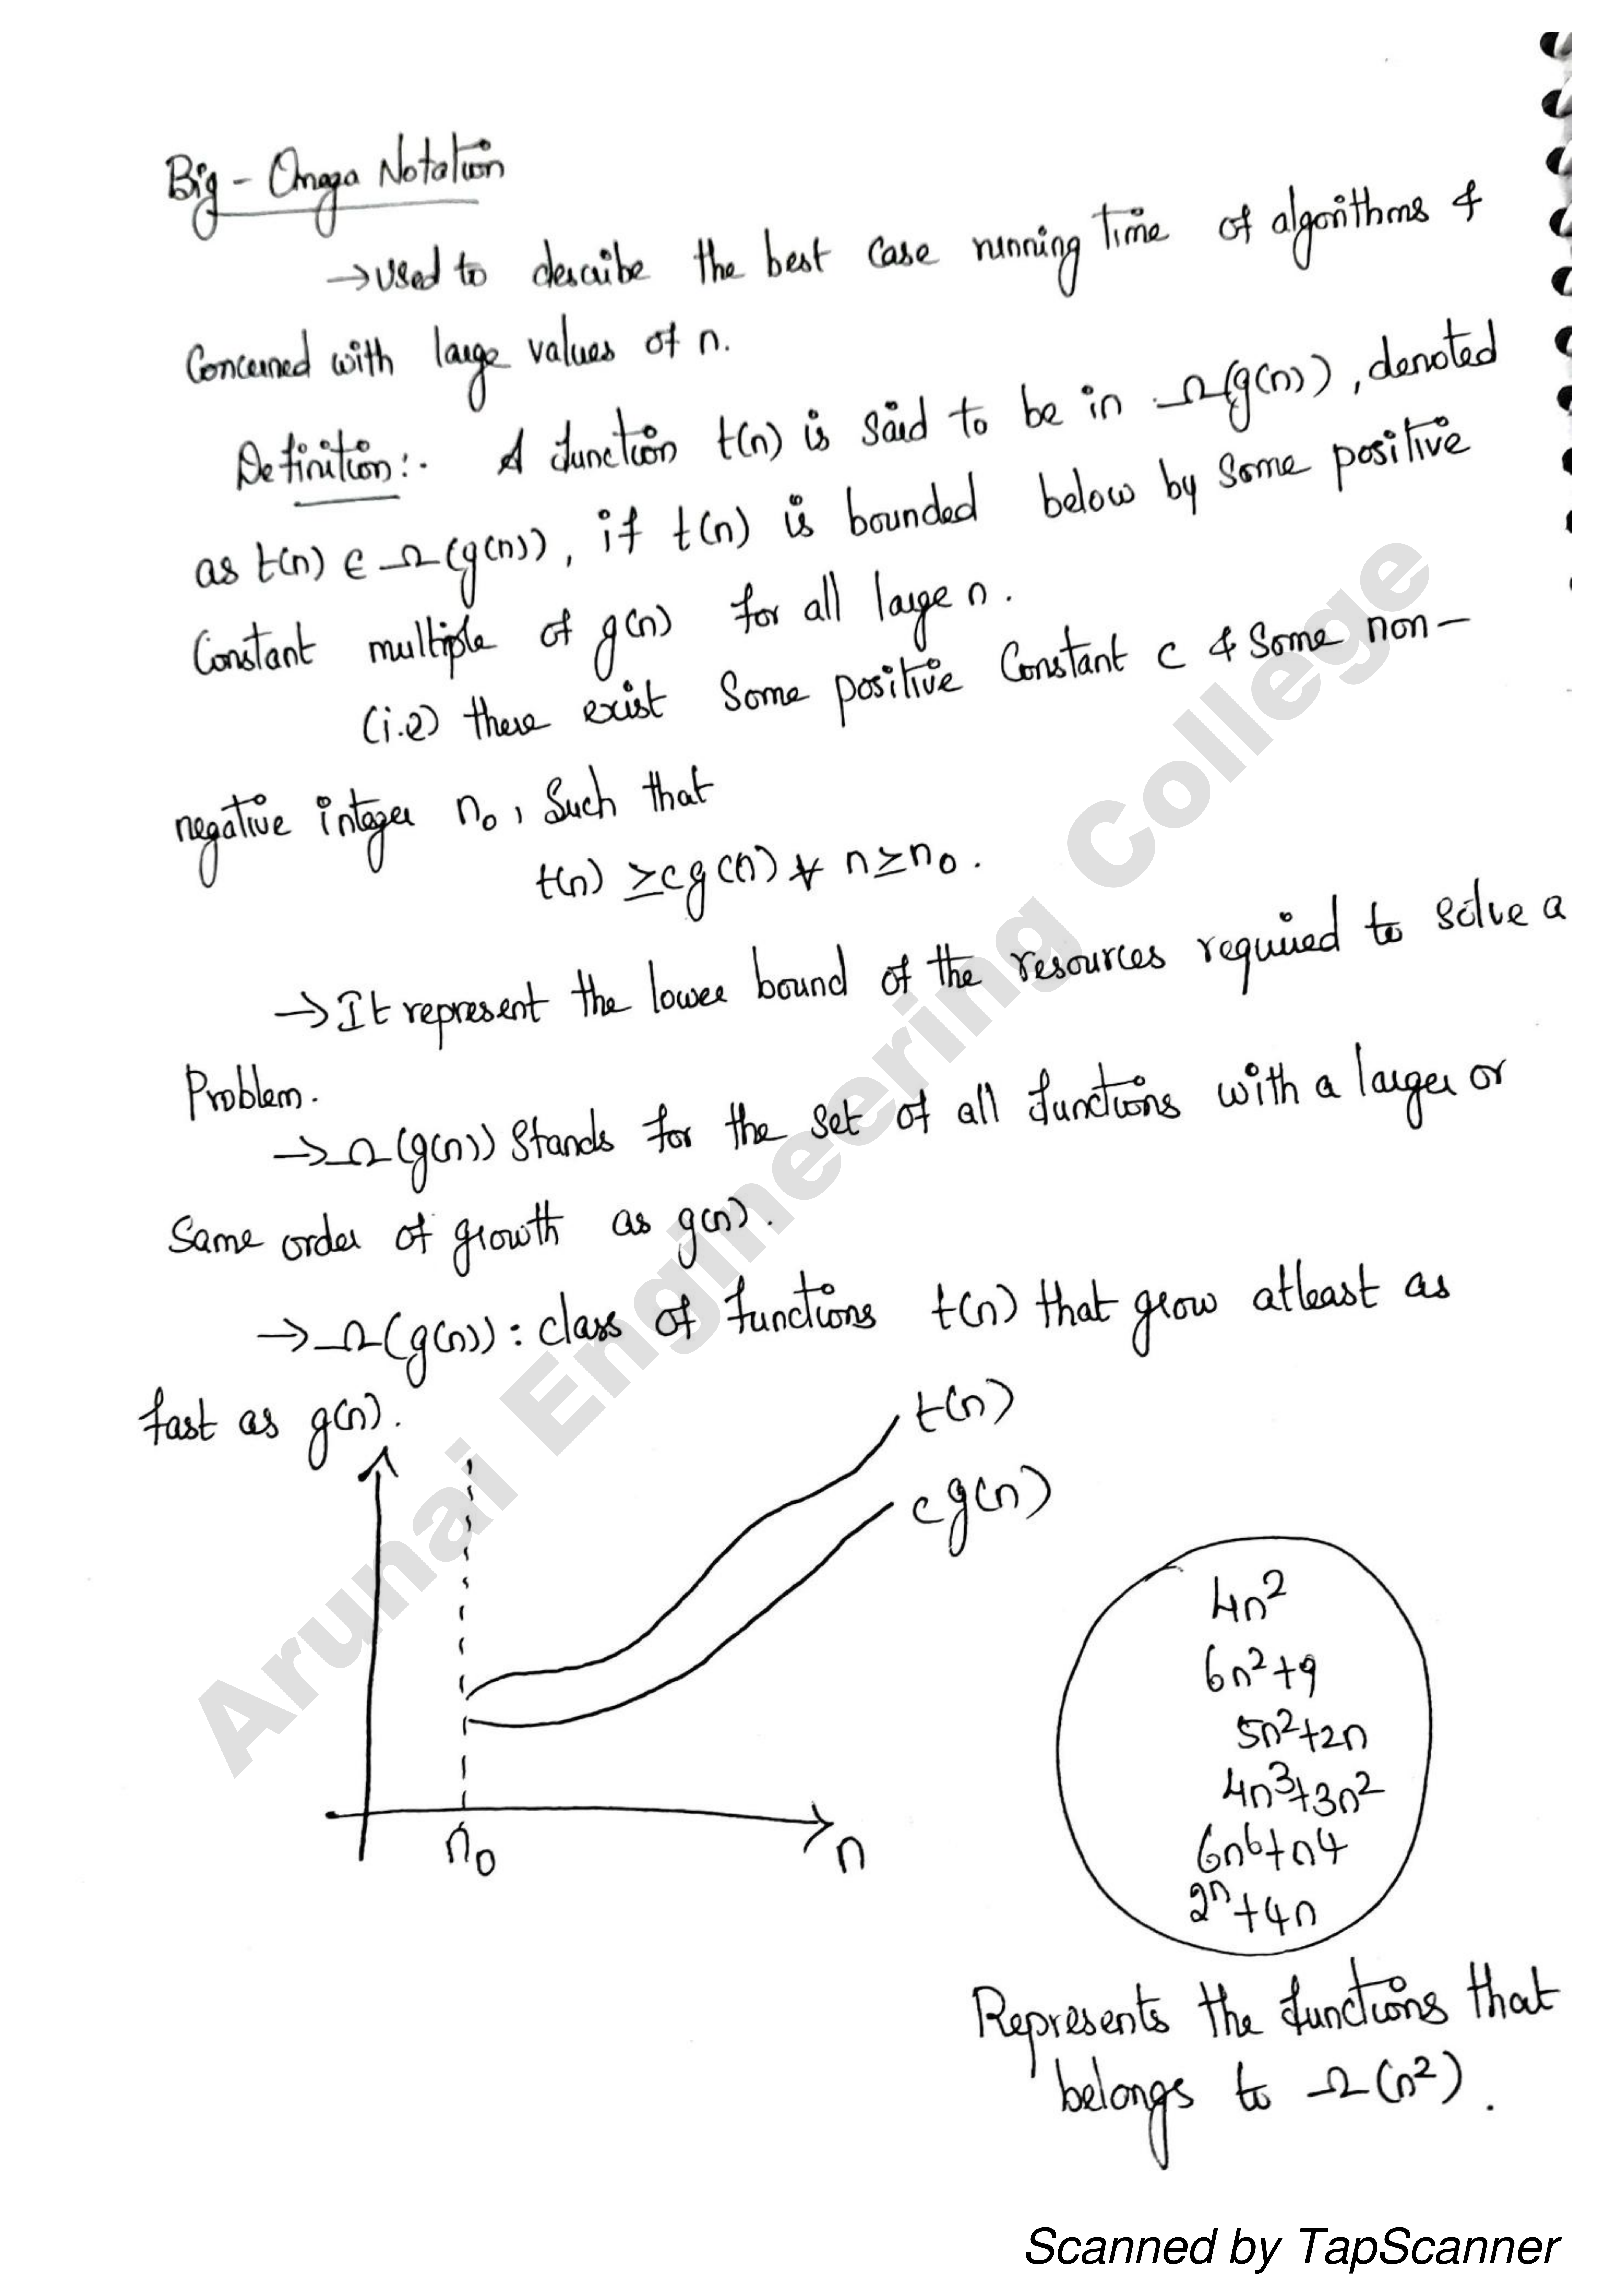 Big - Omega Notation
→ Used to describe the best case running time of algorithms &
Concerned with large values of n.
Definition:- A function t(n) is said to be in Ω(g(n)), denoted
as t(n) ∈ Ω(g(n)), if t(n) is bounded below by some positive
Constant multiple of g(n) for all large n.
(i.e) there exist Some positive Constant c & Some non-
negative integer n₀, Such that
t(n) ≥ cg(n) ∀ n ≥ n₀.
→ It represent the lower bound of the resources required to solve a
Problem.
→ Ω(g(n)) Stands for the set of all functions with a larger or
Same order of growth as g(n).
→ Ω(g(n)) : class of functions t(n) that grow atleast as
fast as g(n).
t(n)
cg(n)
n₀
n
4n²
6n²+9
5n²+2n
4n³+3n²
6n⁶+n4
2ⁿ+4n
Represents the functions that
belongs to Ω(n²).
Arunai Engineering College
Scanned by TapScanner